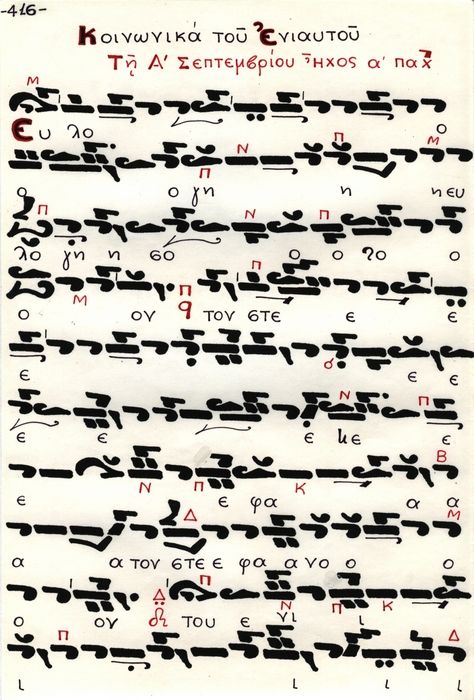 -416-
Κοινωνικά τοῦ Ἐνιαυτοῦ
Τῇ Α' Σεπτεμβρίου Ἦχος α' πα
Μ
Ε υ λο ο
Π Ν Π Μ
ο ο γη η η ευ
Π Ν Π
λο γη η σο ο ο το ο
Μ Π Π
ο ον τον στε ε ε
ε ε ε
Ν Π
ε ε ε κε ε
Ν Π Κ Β
ε ε φα α α
Δ Μ
α α τον στε ε φα α νο ο ο
Δ Π Ν Π Κ
ο ον του ε νι ι
Π Δ
ι ι ι ι